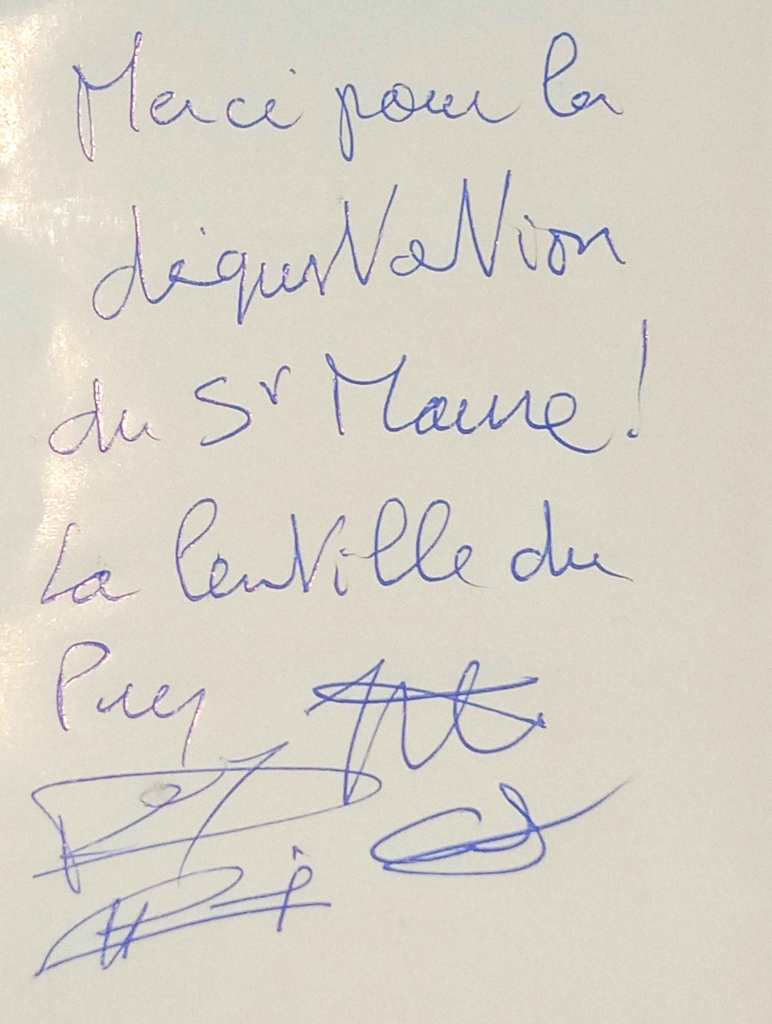 Merci pour la
dégustation
du St Maure !
La lentille du
Puy